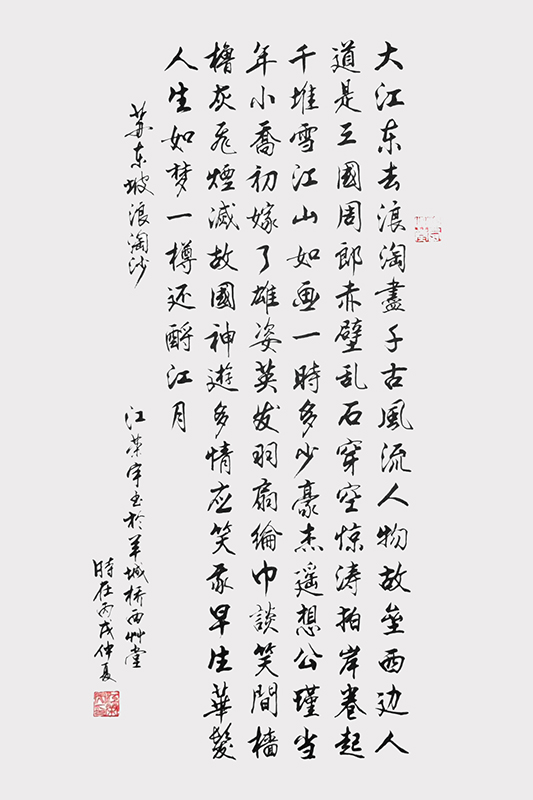 大江东去浪淘盡千古風流人物故壘西边人
道是三國周郎赤壁乱石穿空惊涛拍岸卷起
千堆雪江山如画一時多少豪杰遥想公瑾当
年小喬初嫁了雄姿英发羽扇綸巾談笑間檣
櫓灰飞煙滅故國神遊多情应笑我早生華髮
人生如梦一樽还酹江月
苏东坡浪淘沙
江荣宇书於羊城桥西艸堂
時在丙戌仲夏